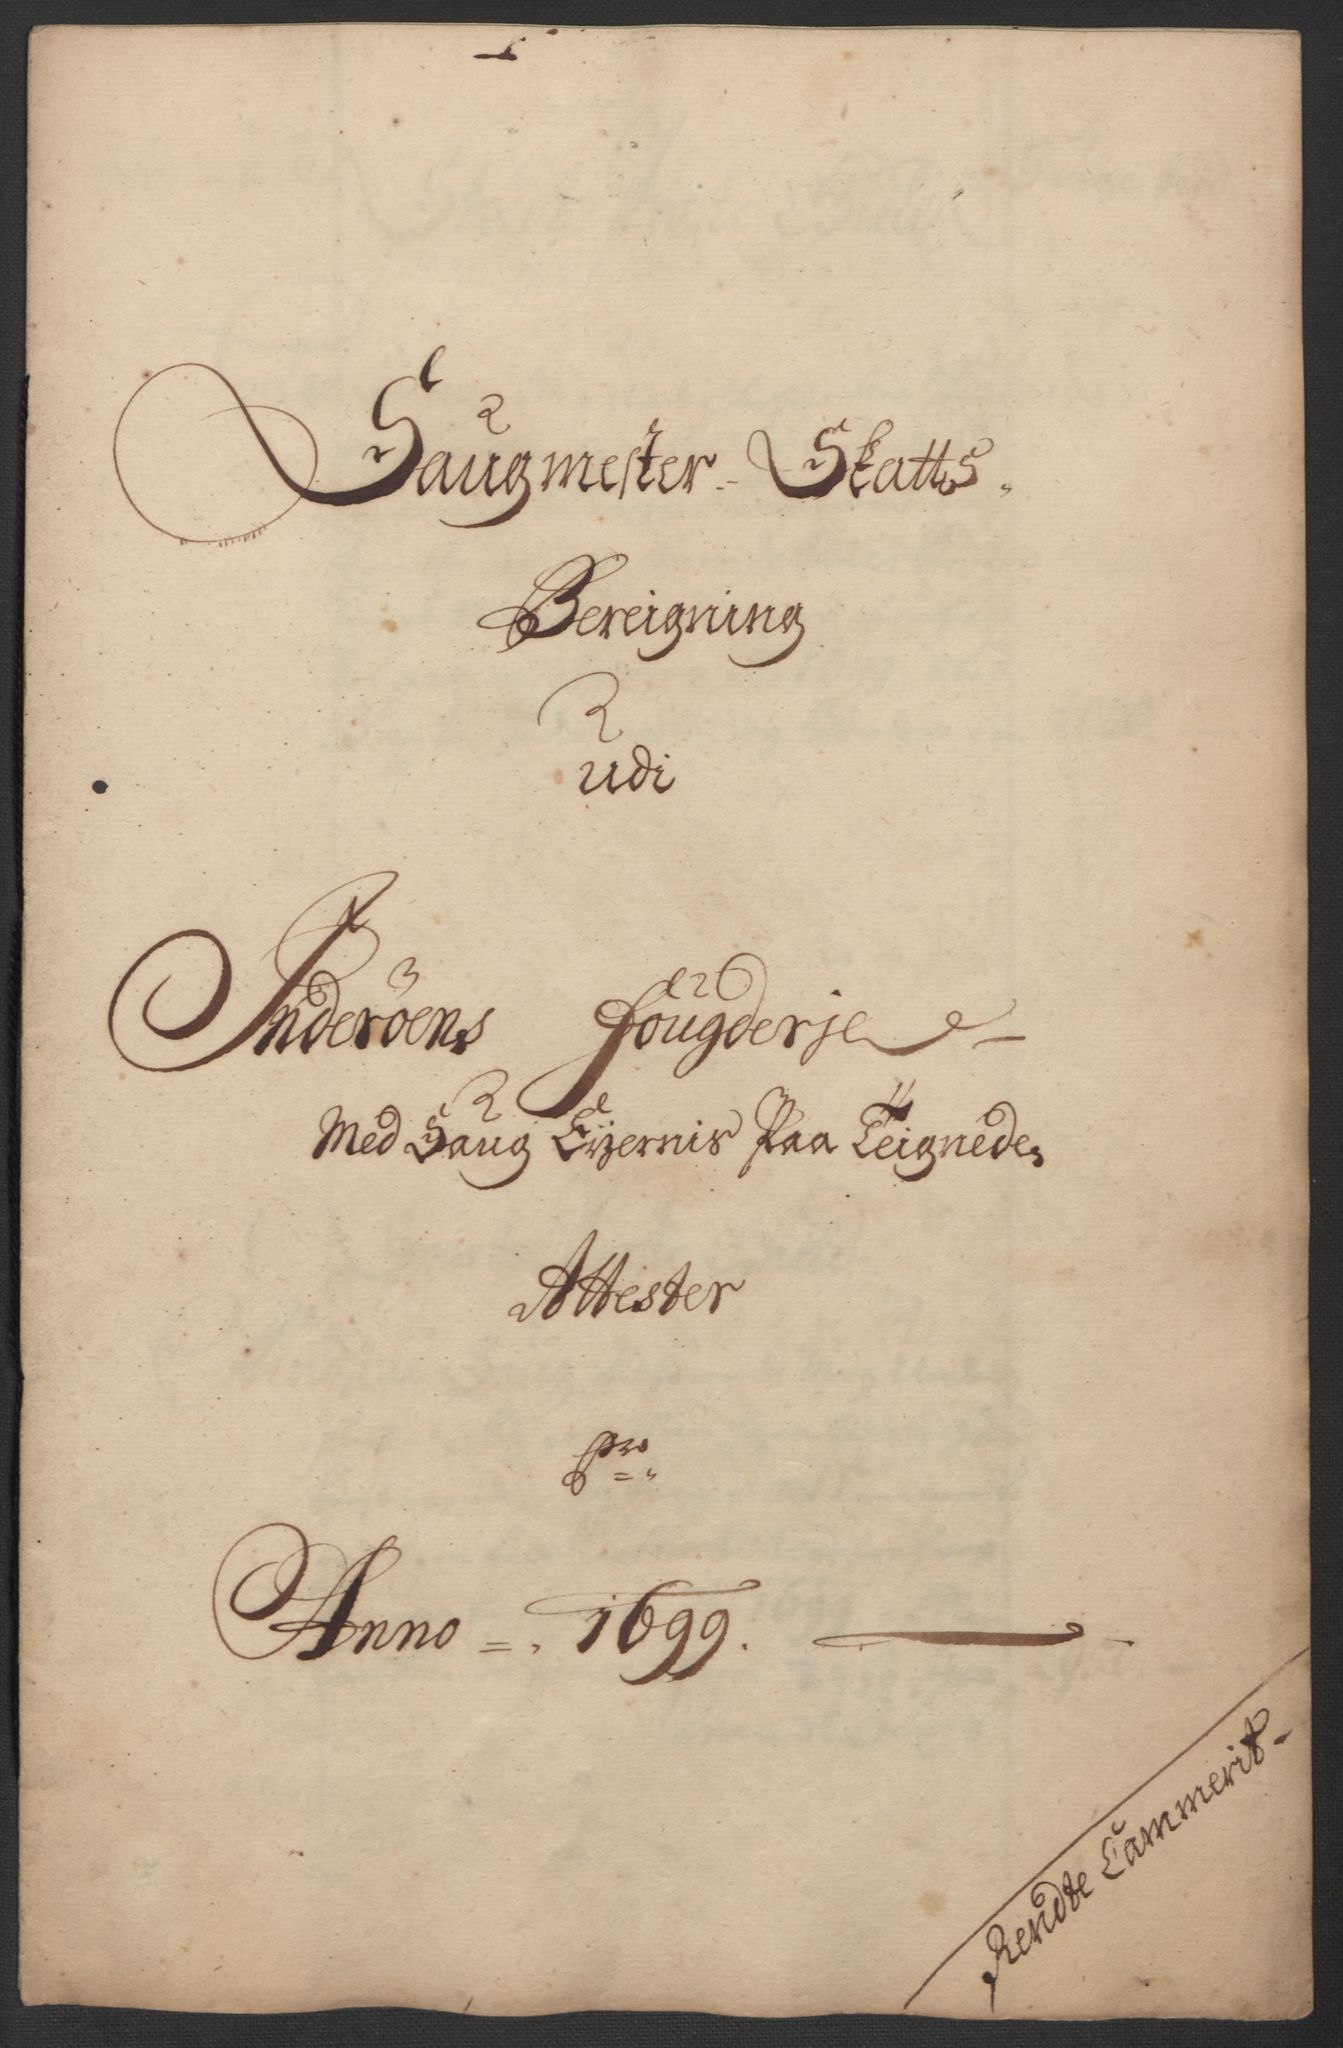 Saugmester-Skatts.
Bereigning
udi
Inderöens fougderje
Med Saug Eÿernis Paa Teignede
Attester
pro
Anno 1699.
Rendte Cammerit